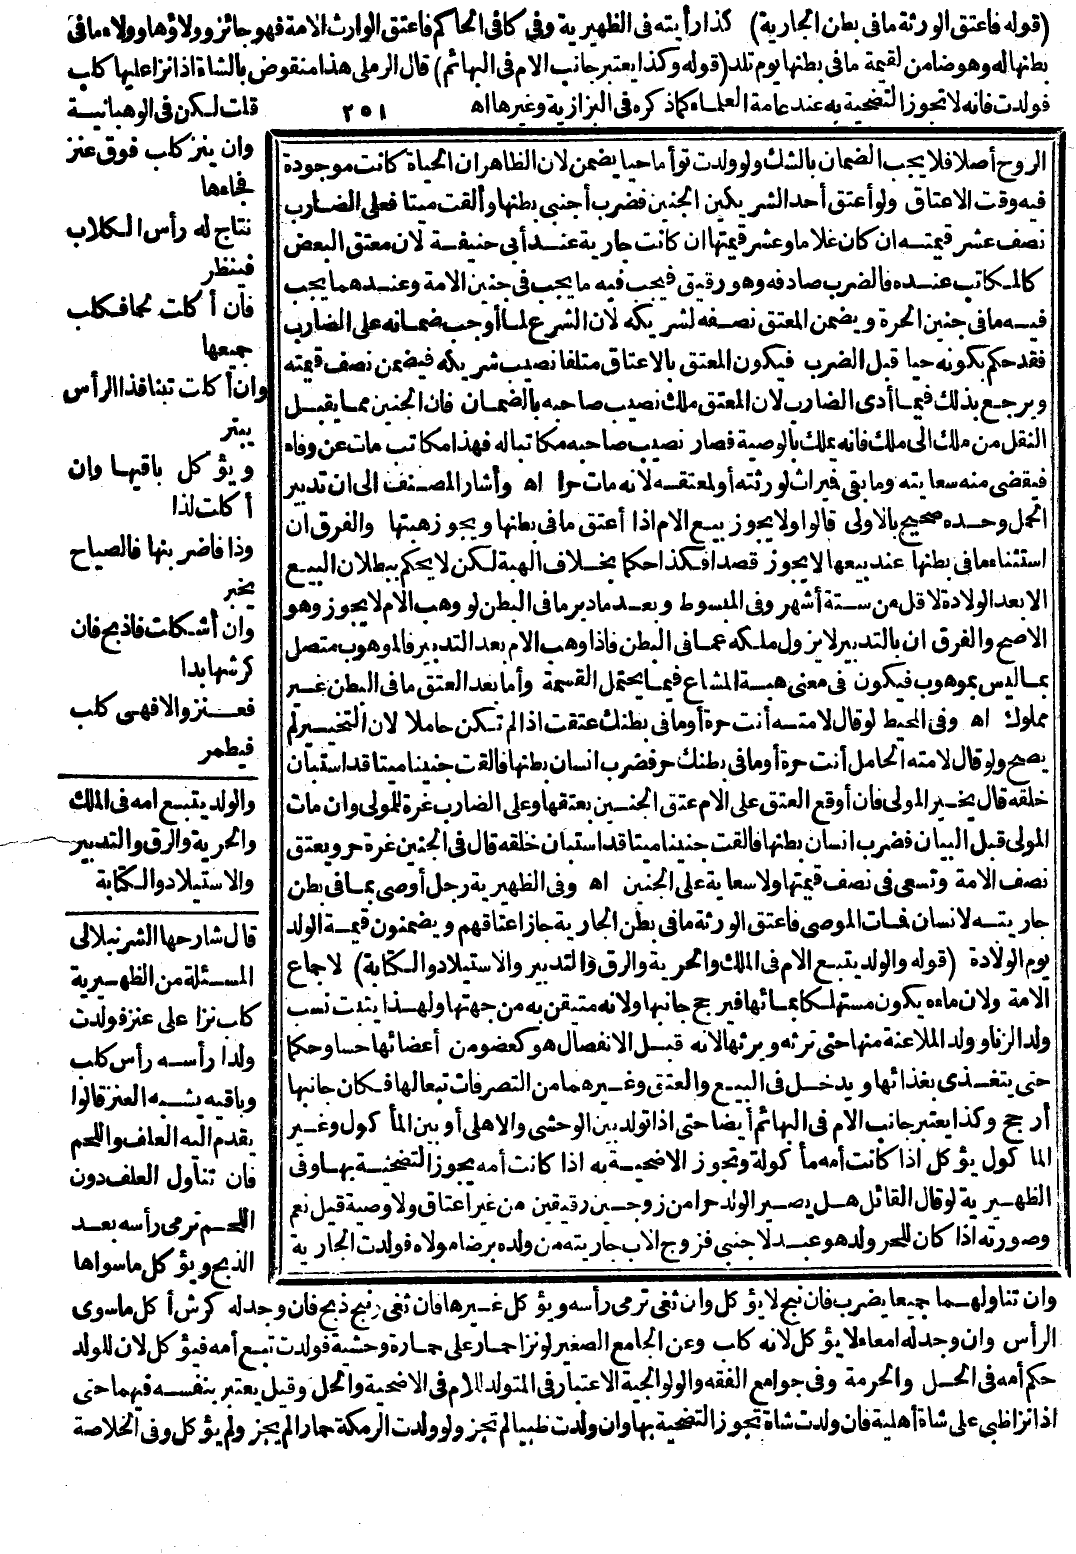 (قوله فاعتق الورثة مافى بطن الجارية) كذا رأيته فى الظهيرية وفى كافى الحاكم فاعتق الوارث الامة فهو جائز وولاؤها وولاء مافى
بطنها له وهو ضامن لقيمة مافى بطنها يوم تلد (قوله وكذا يعتبر جانب الام فى البهائم) قال الرملى هذا منقوض بالشاة اذا نزا عليها كلب
فولدت فانه لا يجوز التضحية به عند عامة العلماء كما ذكره فى البزازية وغيرها اه
٢٥١
قلت لكن فى الوهبانية
وان ينز كلب فوق عنز
فجاءها
نتاج له رأس الكلاب
فينظر
فان أكلت لحما فكلب
جميعها
وان أكلت تبنا فذا الرأس
يبتر
ويؤكل باقيها وان
أكلت لذا
وذا فاضربنها فالصياح
يخبر
وان أشكلت فاذبح فان
كرشها بدا
فعنز والا فهى كلب
فيطمر
والولد يتبع امه فى الملك
والحرية والرق والتدبير
والاستيلاد والكتابة
قال شارحها الشرنبلالى
المسئلة من الظهيرية
كلب نزا على عنز فولدت
ولدا رأسه رأس كلب
وباقيه يشبه العنز قالوا
يقدم اليه العلف واللحم
فان تناول العلف دون
اللحم ترمى رأسه بعد
الذبح ويؤكل ما سواها
الروح أصلا فلا يجب الضمان بالشك ولو ولدت توأما حيا يضمن لان الظاهر ان الحياة كانت موجودة
فيه وقت الاعتاق ولو أعتق أحد الشريكين الجنين فضرب أجنبى بطنها وألقت ميتا فعلى الضارب
نصف عشر قيمته ان كان غلاما وعشر قيمتها ان كانت جارية عند أبى حنيفة لان معتق البعض
كالمكاتب عنده فالضرب صادفه وهو رقيق فيجب فيه ما يجب فى جنين الامة وعندهما يجب
فيه مافى جنين الحرة ويضمن المعتق نصفه لشريكه لان الشرع لما أوجب ضمانه على الضارب
فقد حكم بكونه حيا قبل الضرب فيكون المعتق بالاعتاق متلفا نصيب شريكه فيضمن نصف قيمته
ويرجع بذلك فيما أدى الضارب لان المعتق ملك نصيب صاحبه بالضمان فان الجنين مما يقبل
النقل من ملك الى ملك فانه يملك بالوصية فصار نصيب صاحبه مكاتبا له فهذا مكاتب مات عن وفاء
فيقضى منه سعايته وما بقى ميراث لورثته أو لمعتقه لانه مات حرا اه وأشار المصنف الى ان تدبير
الحمل وحده صحيح بالاولى قالوا ولا يجوز بيع الام اذا أعتق مافى بطنها ويجوز هبتها والفرق ان
استثناء مافى بطنها عند بيعها لا يجوز قصدا فكذا حكما بخلاف الهبة لكن لا يحكم ببطلان البيع
الا بعد الولادة لاقل من ستة أشهر وفى المبسوط وبعد ما دبر ما فى البطن لو وهب الام لا يجوز وهو
الاصح والفرق ان بالتدبير لا يزول ملكه عما فى البطن فاذا وهب الام بعد التدبير فالموهوب متصل
بما ليس بموهوب فيكون فى معنى هبة المشاع فيما يحتمل القسمة وأما بعد العتق مافى البطن غير
مملوك اه وفى المحيط لو قال لامته أنت حرة أو مافى بطنك عتقت اذا لم تكن حاملا لان التخيير لم
يصح ولو قال لامته الحامل أنت حرة أو مافى بطنك حر فضرب انسان بطنها فالقت جنينا ميتا قد استبان
خلقه قال يخير المولى فان أوقع العتق على الام عتق الجنين بعتقها وعلى الضارب غرة للمولى وان مات
المولى قبل البيان فضرب انسان بطنها فالقت جنينا ميتا قد استبان خلقه قال فى الجنين غرة حر ويعتق
نصف الامة وتسعى فى نصف قيمتها ولا سعاية على الجنين اه وفى الظهيرية رجل أوصى بما فى بطن
جاريته لانسان فمات الموصى فاعتق الورثة مافى بطن الجارية جاز اعتاقهم ويضمنون قيمة الولد
يوم الولادة (قوله والولد يتبع الام فى الملك والحرية والرق والتدبير والاستيلاد والكتابة) لاجماع
الامة ولان ماءه يكون مستهلكا بمائها فيرجح جانبها ولانه متيقن به من جهتها ولهذا يثبت نسب
ولد الزنا وولد الملاعنة منها حتى ترثه ويرثها لانه قبل الانفصال هو كعضو من أعضائها حسا وحكما
حتى يتغذى بغذائها ويدخل فى البيع والعتق وغيرهما من التصرفات تبعا لها فكان جانبها
أرجح وكذا يعتبر جانب الام فى البهائم أيضا حتى اذا تولد بين الوحشى والاهلى أو بين المأكول وغير
المأكول يؤكل اذا كانت أمه مأكولة وتجوز الاضحية به اذا كانت أمه يجوز التضحية بها وفى
الظهيرية لو قال القائل هل يصير الولد حرا من زوجين رقيقين من غير اعتاق ولا وصية قيل نعم
وصورته اذا كان للحر ولد هو عبد لاجنبى فزوج الاب جاريته من ولده برضا مولاه فولدت الجارية
وان تناولهما جميعا يضرب فان نبح لا يؤكل وان ثغى ترمى رأسه ويؤكل غيرها فان ثغى ونبح ذبح فان وجد له كرش أكل ما سوى
الرأس وان وجد له امعاء لا يؤكل لانه كلب وعن الجامع الصغير لو نزا حمار على حمارة وحشية فولدت تبع أمه فيؤكل لان للولد
حكم أمه فى الحل والحرمة وفى جوامع الفقه والولوالجية الاعتبار فى المتولد للام فى الاضحية والحل وقيل يعتبر بنفسه فيهما حتى
اذا نزا ظبى على شاة أهلية فان ولدت شاة تجوز التضحية بها وان ولدت ظبيا لم تجز ولو ولدت الرمكة حمارا لم يجز ولم يؤكل وفى الخلاصة